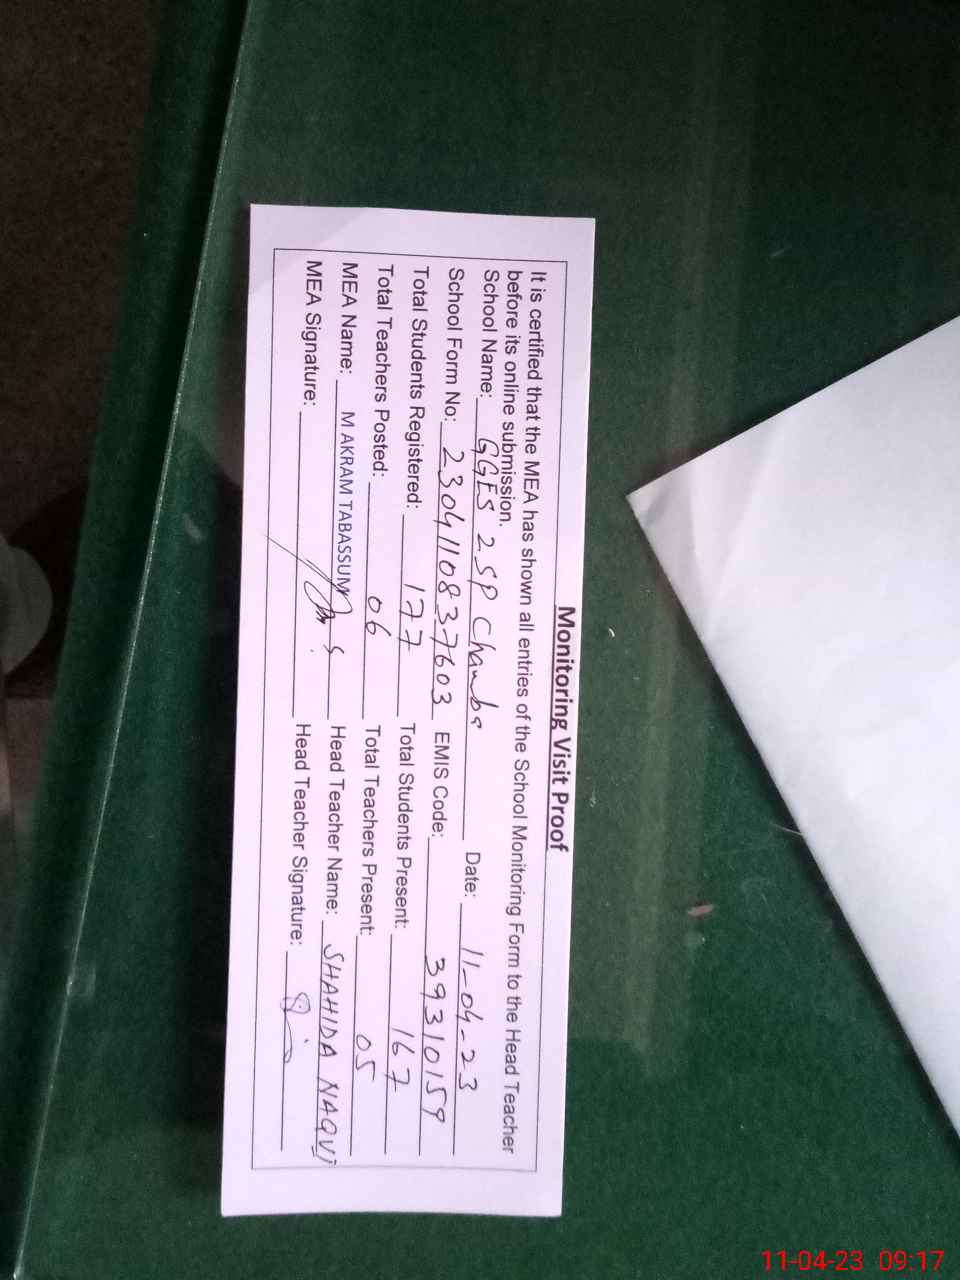 Monitoring Visit Proof
It is certified that the MEA has shown all entries of the School Monitoring Form to the Head Teacher
before its online submission.
School Name: GGES 2.SP Chamba Date: 11-04-23
School Form No: 2304110837603 EMIS Code: 39310159
Total Students Registered: 177 Total Students Present: 167
Total Teachers Posted: 06 Total Teachers Present: 05
MEA Name: M AKRAM TABASSUM Head Teacher Name: SHAHIDA NAQVI
MEA Signature: Head Teacher Signature:
11-04-23 09:17